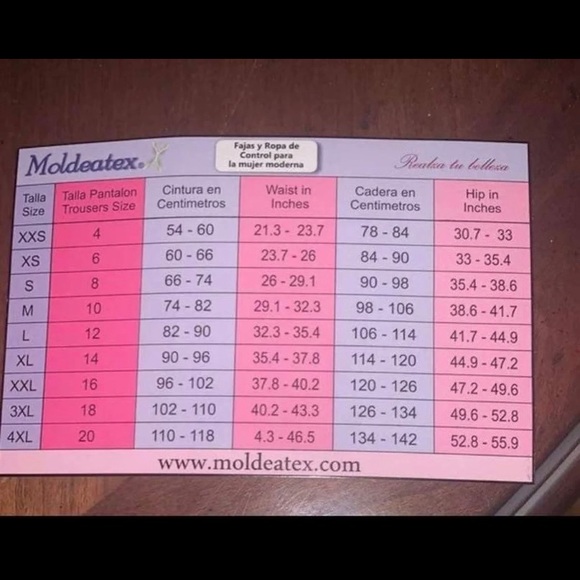 Moldeatex®
Fajas y Ropa de
Control para
la mujer moderna
Realza tu belleza
Talla Size | Talla Pantalon Trousers Size | Cintura en Centimetros | Waist in Inches | Cadera en Centimetros | Hip in Inches
XXS | 4 | 54 - 60 | 21.3 - 23.7 | 78 - 84 | 30.7 - 33
XS | 6 | 60 - 66 | 23.7 - 26 | 84 - 90 | 33 - 35.4
S | 8 | 66 - 74 | 26 - 29.1 | 90 - 98 | 35.4 - 38.6
M | 10 | 74 - 82 | 29.1 - 32.3 | 98 - 106 | 38.6 - 41.7
L | 12 | 82 - 90 | 32.3 - 35.4 | 106 - 114 | 41.7 - 44.9
XL | 14 | 90 - 96 | 35.4 - 37.8 | 114 - 120 | 44.9 - 47.2
XXL | 16 | 96 - 102 | 37.8 - 40.2 | 120 - 126 | 47.2 - 49.6
3XL | 18 | 102 - 110 | 40.2 - 43.3 | 126 - 134 | 49.6 - 52.8
4XL | 20 | 110 - 118 | 4.3 - 46.5 | 134 - 142 | 52.8 - 55.9
www.moldeatex.com